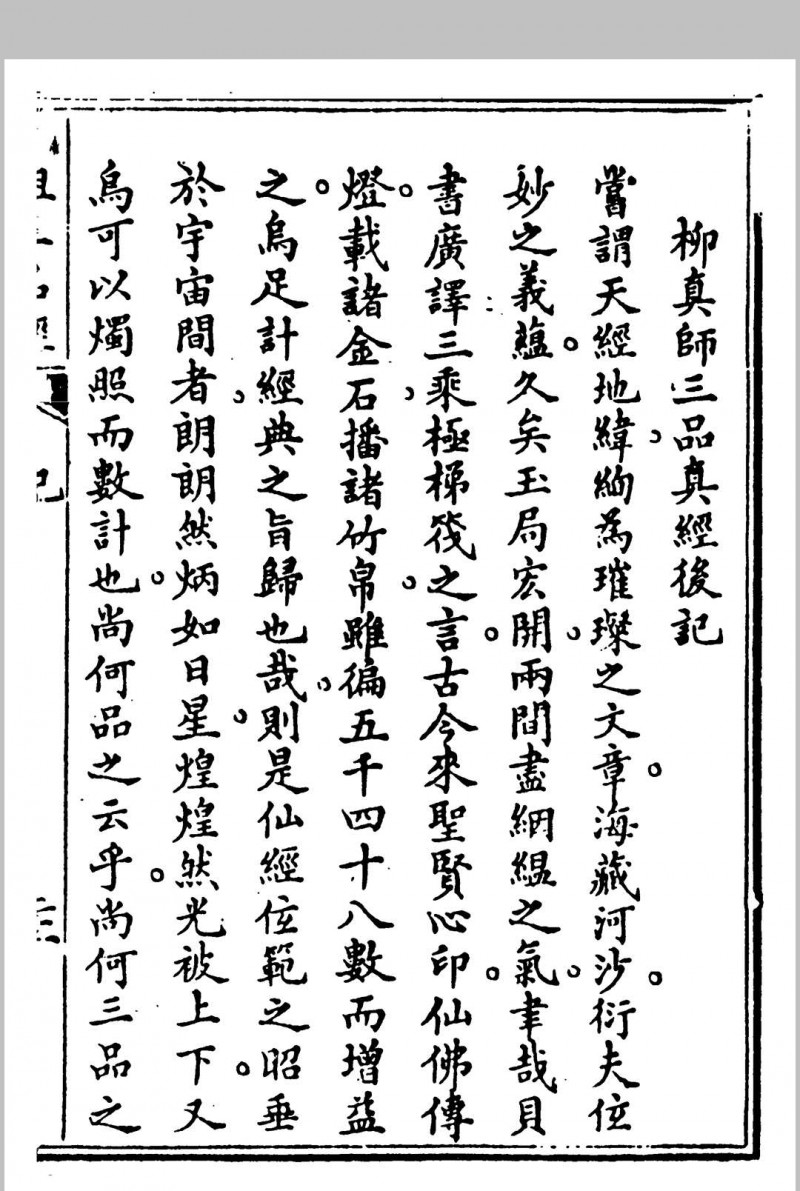 柳真師三品真經後記
嘗謂天經地緯緬為璀璨之文章海藏河沙衍夫位
妙之義蘊久矣玉局宏開兩間盡絪縕之氣聿哉貝
書廣譯三乘極梯筏之言古今來聖賢心印仙佛傳
燈載諸金石播諸竹帛雖徧五千四十八數而增益
之烏足計經典之旨歸也哉則是仙經位範之昭垂
於宇宙間者朗朗然炳如日星煌煌然光被上下又
烏可以燭照而數計也尚何品之云乎尚何三品之
三品經 記 三